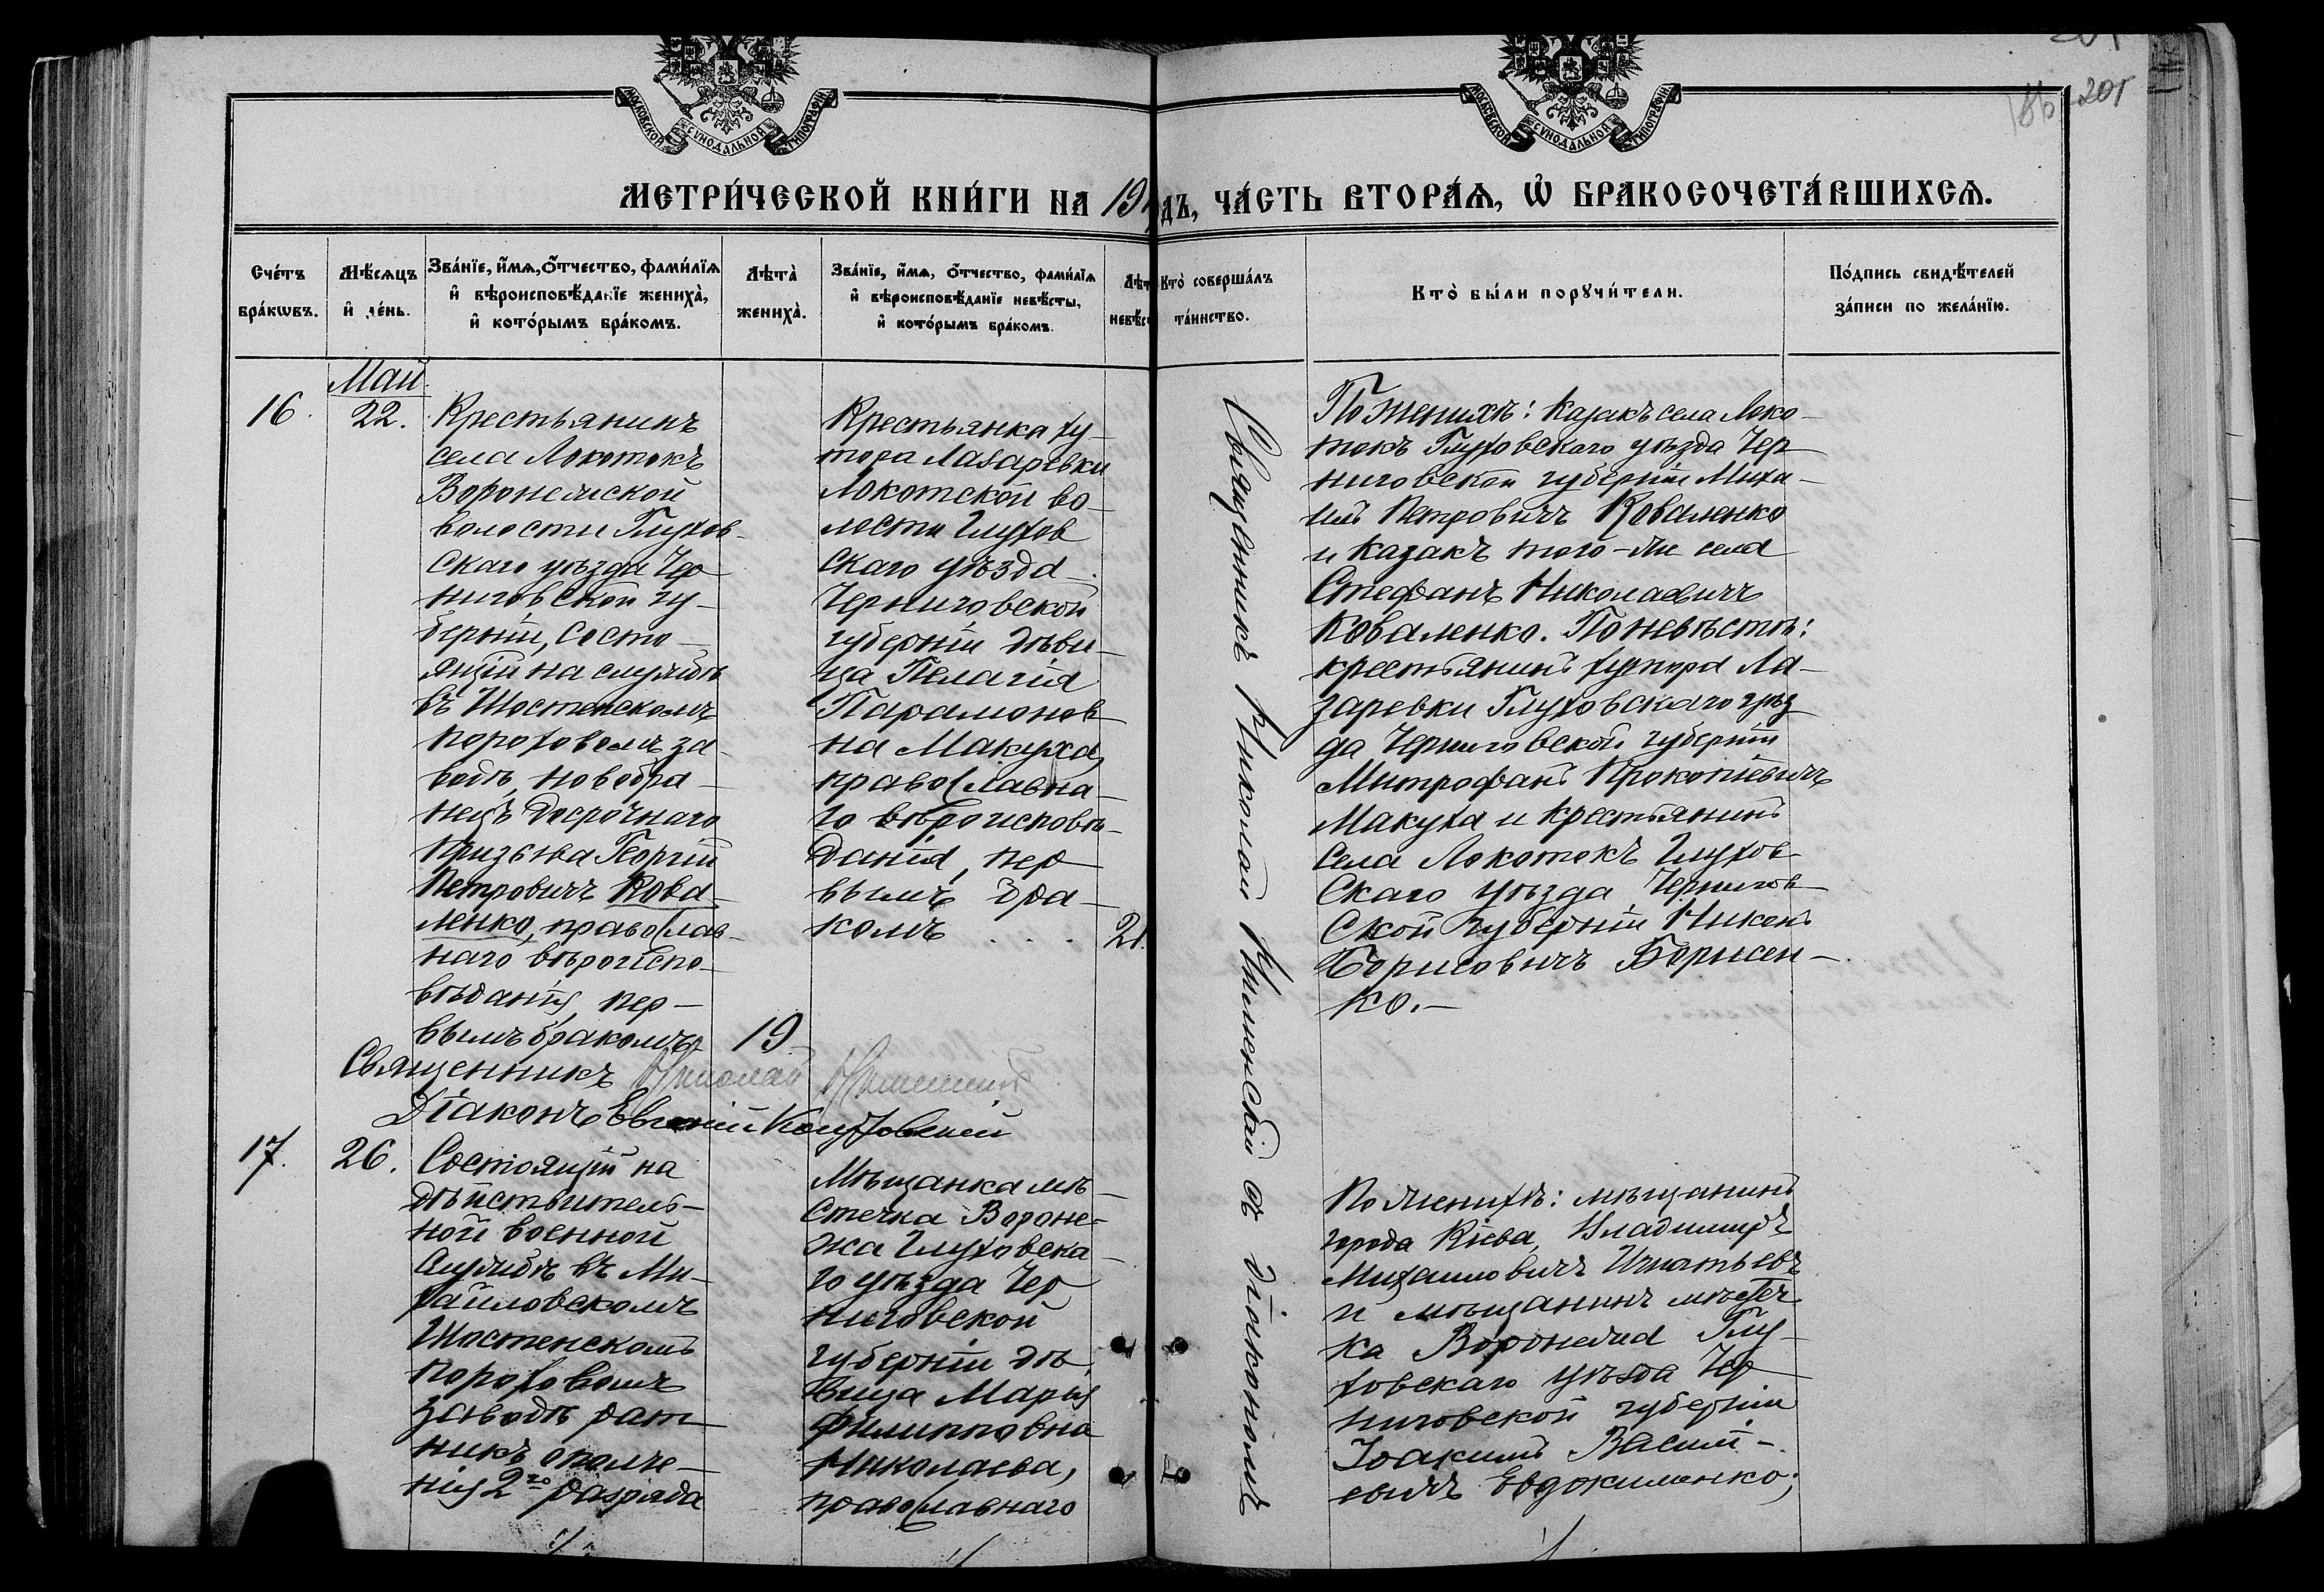 201
186 201
МОСКОВСКОЙ СѴНОДАЛЬНОЙ ТИПОГРАФІИ
МОСКОВСКОЙ СѴНОДАЛЬНОЙ ТИПОГРАФІИ
МЕТРИ́ЧЕСКОЙ КНИ́ГИ НА 19
ДЪ, ЧА́СТЬ ВТОРА́Ѧ, Ѽ БРАКОСОЧЕТА́ВШИХСѦ.
Сче́тъ
бра́кѡвъ.
Мѣ́сѧцъ
и҆ де́нь.
Зва́нїе, и҆́мѧ, ѻ҆́тчество, фами́лїѧ
и҆ вѣроисповѣ́данїе жениха̀,
и҆ кото́рымъ бра́комъ.
Лѣта̀
жениха̀.
Зва́нїе, и҆́мѧ, ѻ҆́тчество, фами́лїѧ
и҆ вѣроисповѣ́данїе невѣ́сты,
и҆ кото́рымъ бра́комъ.
Лѣт
невѣс
Кто̀ соверша́лъ
та́инство.
Кто̀ бы́ли порꙋчи́тели.
По́дпись свидѣ́телей
за́писи по жела́нїю.
Май
16.
22.
Крестьянинъ
села Локотокъ
Воронежской
волости Глухов-
скаго уѣзда Чер
ниговской гу-
берніи, состо-
ящій на службѣ
въ Шостенскомъ
пороховомъ за-
водѣ, новобра-
нецъ досрочнаго
призыва Георгій
Петровичъ Кова-
ленко, православ-
наго вѣроиспо-
вѣданія, пер-
вымъ бракомъ
19
Крестьянка ху-
тора Лазаревки
Локотской во-
лости Глухов
скаго уѣзда
Черниговской
губерніи дѣви-
ца Пелагія
Парамонов-
на Макуха,
православна-
го вѣроисповѣ-
данія, пер-
вымъ бра-
комъ . . .
21.
Священникъ Николай Клименскій съ діакономъ
По женихѣ: казакъ села Локо-
токъ Глуховскаго уѣзда Чер-
ниговской губерніи Миха-
илъ Петровичъ Коваленко
и казакъ того-же села
Стефанъ Николаевичъ
Коваленко. По невѣстѣ:
крестьянинъ хутора Ла-
заревки Глуховскаго уѣз-
да Черниговской губерніи
Митрофанъ Прокопіевичъ
Макуха и крестьянинъ
села Локотокъ Глухов-
скаго уѣзда Чернигов-
ской губерніи
Борисовичъ Борисен-
ко.-
Священникъ Николай
Діаконъ Евгеній
17.
26.
Состоящій на
дѣйствитель-
ной военной
службѣ въ Ми-
хайловскомъ
Шостенскомъ
пороховомъ
заводѣ рат-
никъ ополче-
нія 2го разряда
Мѣщанка мѣ-
стечка Вороне-
жа Глуховска-
го уѣзда Чер
ниговской
губерніи дѣ-
вица Марія
Филипповна
Николаева,
православнаго
По женихѣ: мѣщанинъ
города Кіева, Владиміръ
Михаиловичъ Игнатьевъ
и мѣщанинъ мѣстеч
ка Воронежа Глу-
ховскаго уѣзда Чер-
ниговской губерніи
Іоакимъ Васили-
евичъ Евдокименко;